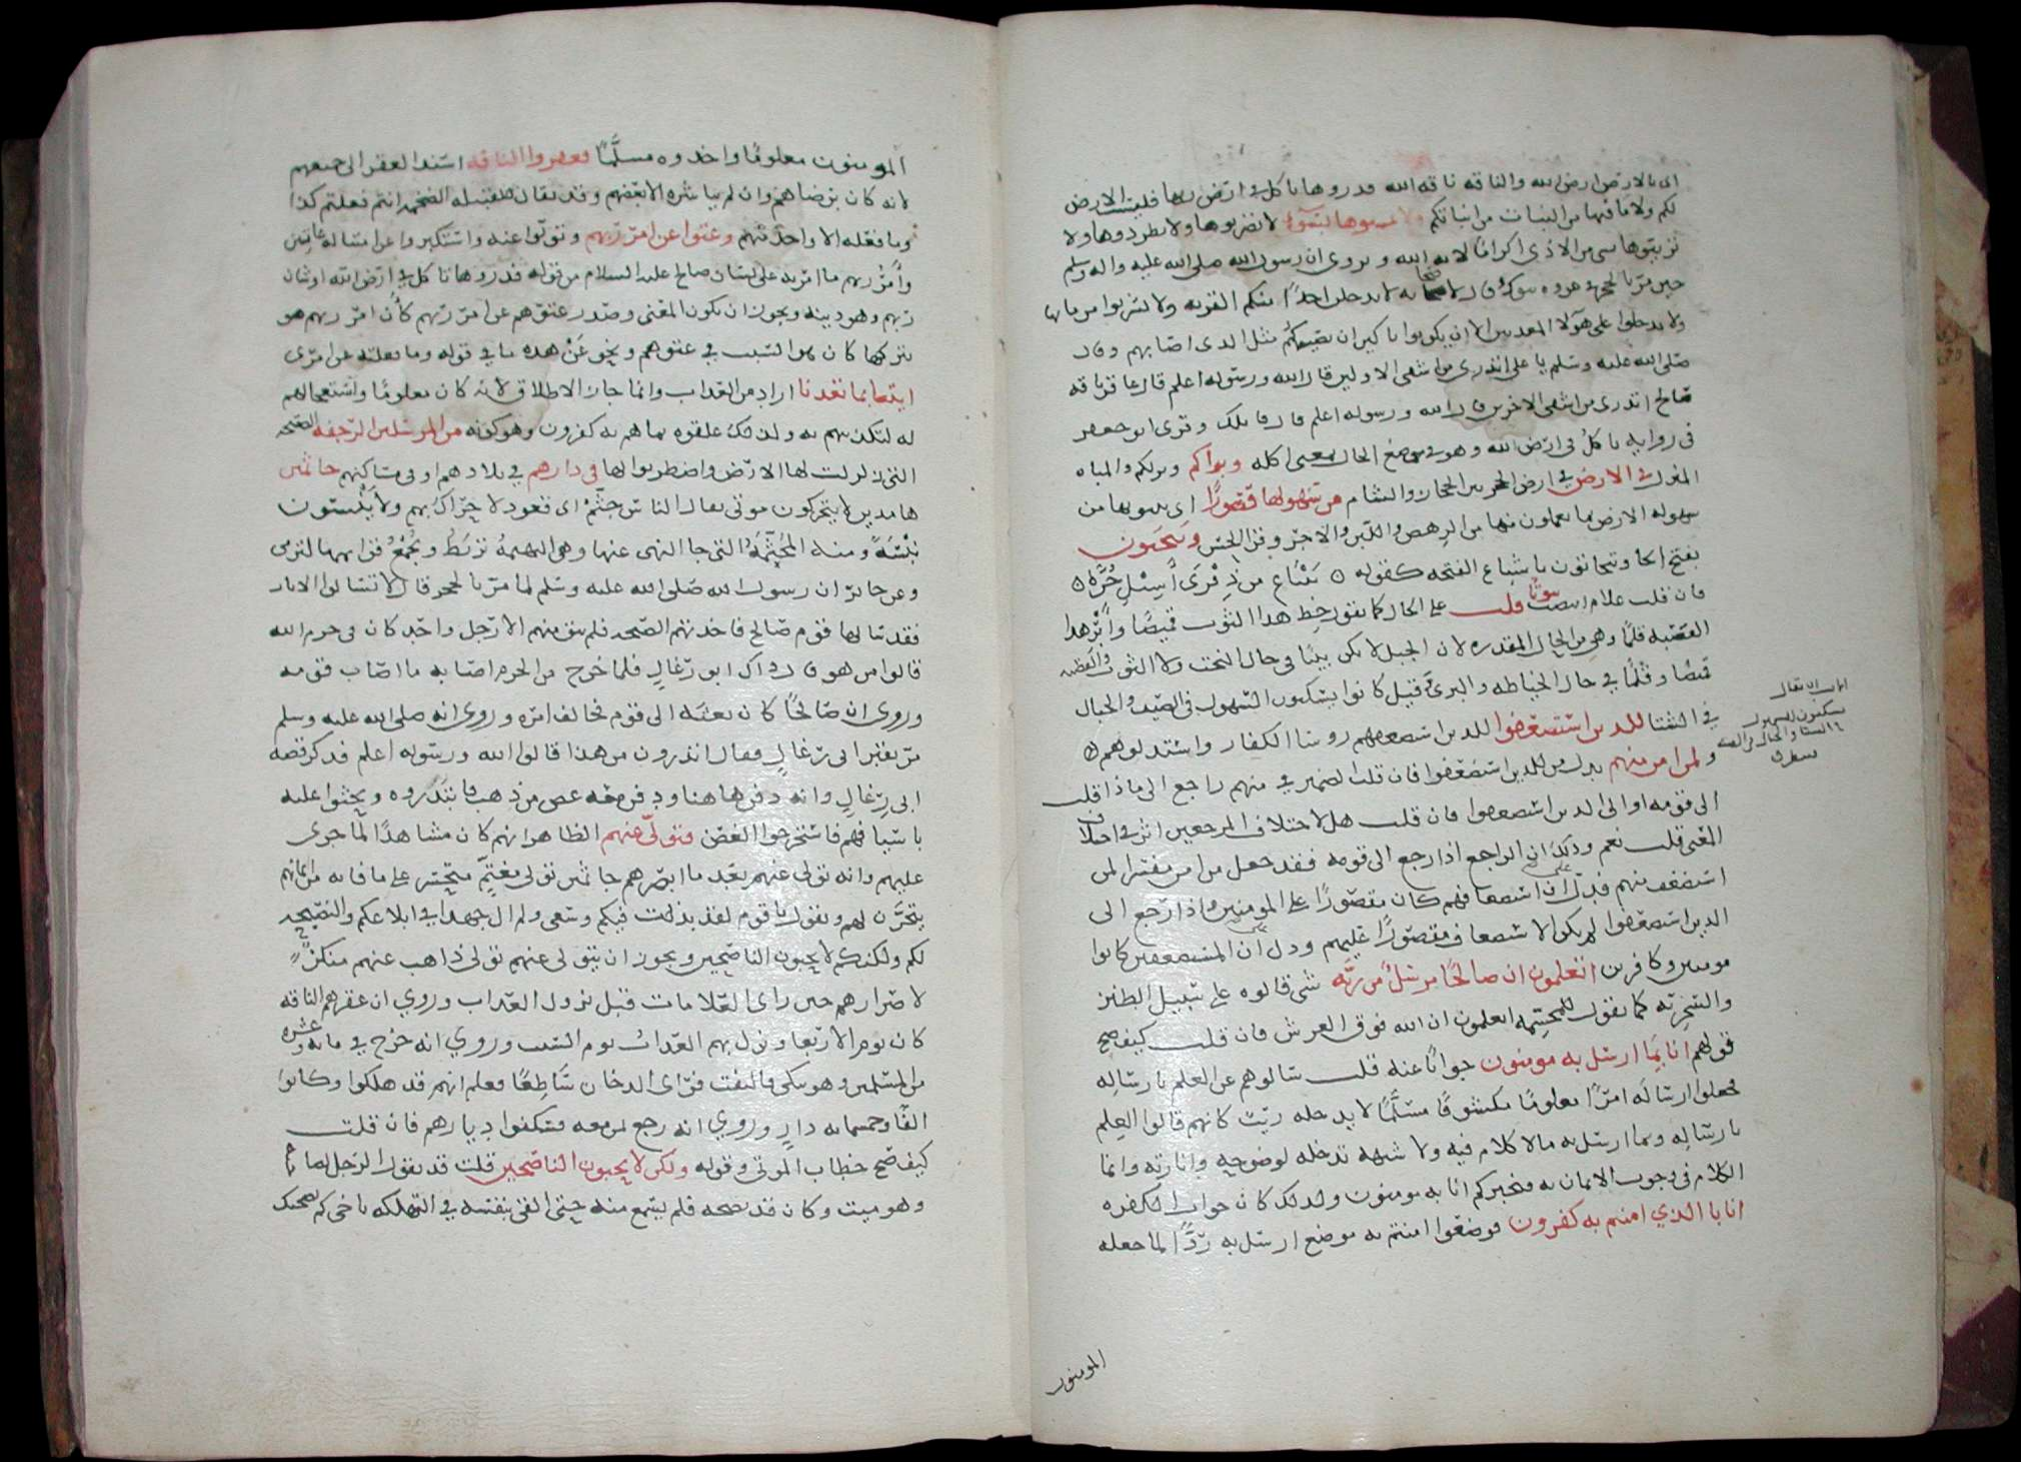 اى الارض ارض الله والناقه ناقه الله فذروها تاكل فى ارض ربها فليست الارض
لكم ولا ما فيها من النبات من انباتكم ولا تمسوها بسوء لا تضربوها ولا تطردوها ولا
تريبوها بشى من الاذى اكراما لايه الله و يروى ان رسول الله صلى الله عليه واله وسلم
حين مر بالحجر فى غزوه تبوك قال لاصحابه لا يدخلن احد منكم القريه ولا تشربوا من مايها
ولا تدخلوا على هولا المعذبين الا ان يكونوا باكين ان يصيبكم مثل الذى اصابهم وقال
صلى الله عليه وسلم يا على اتدرى من اشقى الاولين قال الله ورسوله اعلم قال عاقر ناقه
صالح اتدرى من اشقى الاخرين قال الله ورسوله اعلم قال قاتلك وقرى ابو جعفر
فى روايه تاكل فى ارض الله وهو فى موضع الحال بمعنى اكله وبواكم ونزلكم والمباه
المنزل فى الارض فى ارض الحجر بين الحجاز والشام من سهولها قصورًا اى تبنونها من
سهوله الارض بما تعملون منها من الرهص واللبن والاجر وقرا الحسن وتنحتون
بفتح الحا وتنحاتون باشباع الفتحه كقوله ينباع من ذفرى اسيل حره
فان قلت علام انتصب بيوتا قلت على الحال كما تقول خط هذا الثوب قميصًا وابر هذا
القصبه قلمًا وهى من الحال المقدره لان الجبل لا يكون بيتًا فى حال النحت ولا الثوب والقصبه
قميصًا وقلمًا فى حال الخياطه والبرى وقيل كانوا يسكنون السهول فى الصيف والجبال
فى الشتا للذين استضعفوا للذين استضعفهم روسا الكفار واستذلوهم
ولمن امن منهم بدل من للذين استضعفوا فان قلت الضمير فى منهم راجع الى ماذا قلت
الى قومه او الى الذين استضعفوا فان قلت هل لاختلاف المرجعين اثر فى اختلاف
المعنى قلت نعم وذلك ان الراجع اذا رجع الى قومه فقد جعل من امن مفسرا لمن
استضعف منهم فدل على ان استضعافهم كان مقصورًا على المومنين واذا رجع الى
الذين استضعفوا لم يكن الاستضعاف مقصورًا عليهم ودل على ان المستضعفين كانوا
مومنين وكافرين اتعلمون ان صالحًا مرسل من ربه شى قالوه على سبيل الطنز
والسخريه كما تقول للمجسمه اتعلمون ان الله فوق العرش فان قلت كيف صح
قولهم انا بما ارسل به مومنون جوابًا عنه قلت سالوهم عن العلم بارساله
فجعلوا ارساله امرًا معلومًا مكشوفًا مسلمًا لا يدخله ريب كانهم قالوا العلم
بارساله وبما ارسل به ما لا كلام فيه ولا شبهه تدخله لوضوحه وانارته وانما
الكلام فى وجوب الايمان به فنخبركم انا به مومنون ولذلك كان جواب الكفره
انا بالذي امنتم به كفرون فوضعوا امنتم به موضع ارسل به ردًا لما جعله
المومنون
المومنون معلومًا واخذوه مسلمًا فعقروا الناقه اسند العقر الى جميعهم
لانه كان برضاهم وان لم يباشره الا بعضهم وقد يقال للقبيله الضخمه انتم فعلتم كذا
وما فعله الا واحد منهم وعتوا عن امر ربهم وتولوا عنه واستكبروا عن امتثاله عاتين
وامر ربهم ما امر به على لسان صالح عليه السلام من قوله فذروها تاكل فى ارض الله او شان
ربهم وهو دينه ويجوز ان يكون المعنى وصدر عتوهم عن امر ربهم كان امر ربهم هو
بتركها كان هو السبب فى عتوهم ونحو عن هذه ما فى قوله وما فعلته عن امرى
ايتنا بما تعدنا اراد من العذاب وانما جاز الاطلاق لانه كان معلومًا واستعجالهم
له لتكذيبهم به ولذلك علقوه بما هم به كفرون وهو كونه من المرسلين الرجفه الصيحه
التى زلزلت لها الارض واضطربوا لها فى دارهم فى بلادهم او فى مساكنهم جاثمين
هامدين لا يتحركون موتى يقال الناس جثم اى قعود لا حراك بهم ولا ينبسون
نبسه ومنه المجثمه التى جا النهى عنها وهى البهيمه تربط وتجمع قوايمها لترمى
وعن جابر ان رسول الله صلى الله عليه وسلم لما مر بالحجر قال لا تسالوا الايات
فقد سالها قوم صالح فاخذتهم الصيحه فلم يبق منهم الا رجل واحد كان فى حرم الله
قالوا من هو قال ذاك ابو رغال فلما خرج من الحرم اصابه ما اصاب قومه
وروى ان صالحًا كان بعثه الى قوم فخالف امره وروى انه صلى الله عليه وسلم
مر بقبر ابى رغال فقال اتدرون من هذا قالوا الله ورسوله اعلم فذكر قصه
ابى رغال وانه دفن هاهنا ودفن معه غصن من ذهب فابتدروه وبحثوا عليه
باسيافهم فاستخرجوا الغصن فتولى عنهم الظاهر انه كان مشاهدًا لما جرى
عليهم وانه تولى عنهم بعد ما ابصرهم جاثمين تولى مغتم متحسر على ما فاته من ايمانهم
يتحزن لهم ويقول يا قوم لقد بذلت فيكم وسعى ولم ال جهدا فى ابلاغكم والنصيحه
لكم ولكنكم لا تحبون الناصحين ويجوز ان يتولى عنهم تولى ذاهب عنهم منكر
لاصرارهم حين راى العلامات قبل نزول العذاب وروي ان عقرهم الناقه
كان يوم الاربعا ونزل بهم العذاب يوم السبت وروي انه خرج فى مايه وعشره
من المسلمين وهو يبكى فالتفت فراى الدخان ساطعًا فعلم انهم قد هلكوا وكانوا
الفًا وخمسمايه دار وروي انه رجع بمن معه فسكنوا ديارهم فان قلت
كيف صح خطاب الموتى وقوله ولكن لا تحبون الناصحين قلت قد يقول الرجل لصاحبه
وهو ميت وكان قد نصحه فلم يسمع منه حتى القى بنفسه فى التهلكه يا اخى كم نصحتك